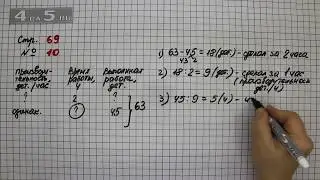 4 на 5 .ru
Стр. 69
№ 10
Произво- Время Выполнен.
дитель- работы, работа,
ность, ч дет.
дет./час
? 2 ?
одинак. ? 45 } 63
1) 63 - 45 = 18 (дет.) - сделал за 2 часа
2) 18 : 2 = 9 (дет.) - сделал за 1 час
(производительность
дет./ч)
3) 45 : 9 = 5 (ч) -